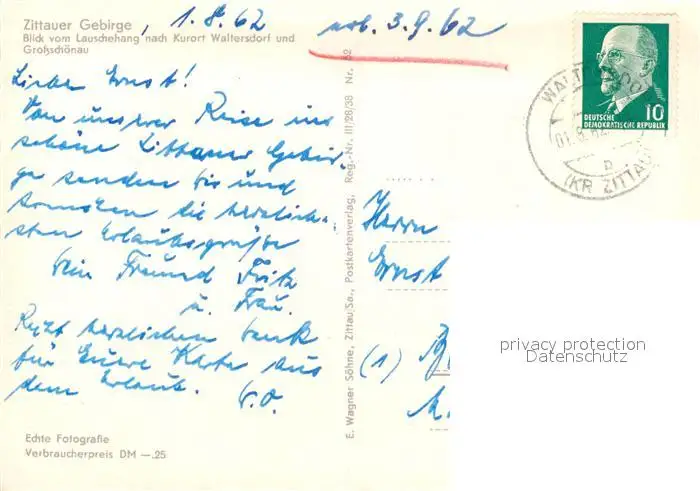 Zittauer Gebirge, 1.8.62
Blick vom Lauschehang nach Kurort Waltersdorf und
Großschönau
3.9.62
Liebe Ernst!
Von unserer Reise ins
schöne Zittauer Gebir-
ge senden Dir und
die herzlich-
sten Urlaubsgrüße
Dein Freund Fritz
u. Frau.
herzlichen Dank
für Euere Karte aus
dem Urlaub. D.O.
Echte Fotografie
Verbraucherpreis DM —.25
E. Wagner Söhne, Zittau/Sa., Postkartenverlag, Reg.-Nr. III/28/38 Nr. 62
Herrn
Ernst
(1)
10
DEUTSCHE
DEMOKRATISCHE REPUBLIK
WALTERSDO
01.8.62
(KR ZITTAU)
privacy protection
Datenschutz